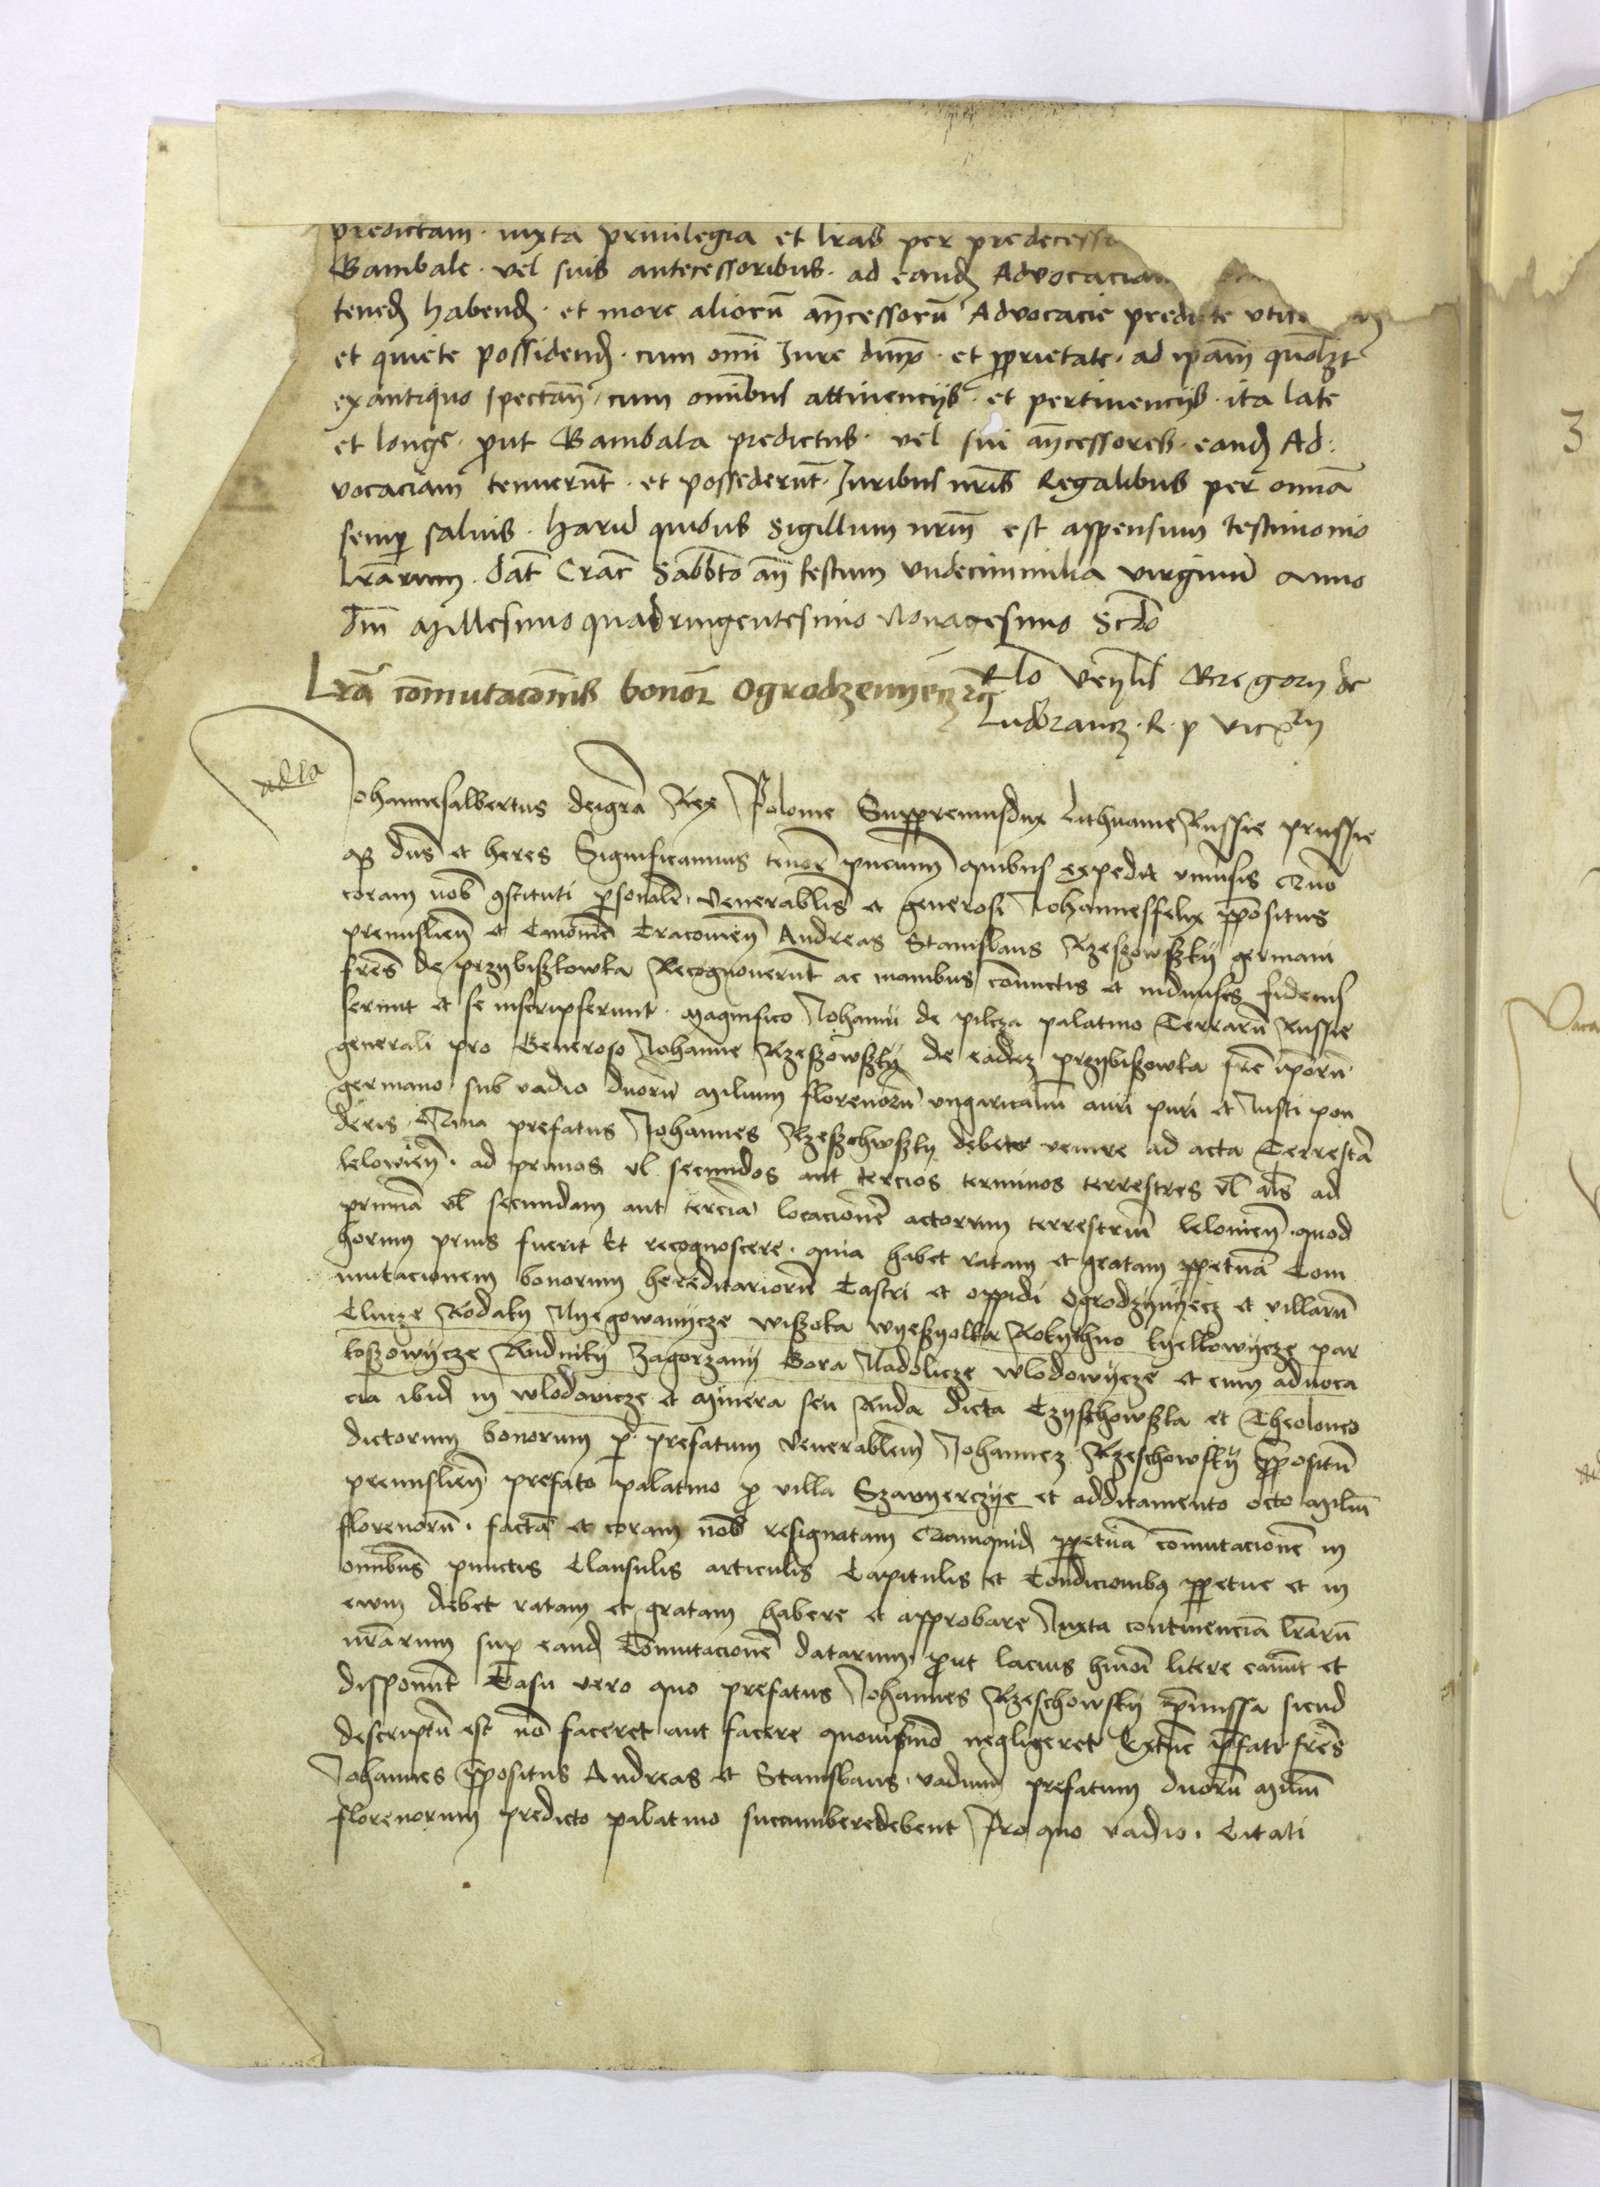 predictam · iuxta priuilegia et lras per predecess
Bambale · vel suis antecessoribus · ad eand Advocaciam
tenend habend · et more aliorū añcessorū Advocacie predicte
et quiete possidend · cum omi Jure dnio · et pprietate · ad ipam quolzt
exantiquo spectañ · cum omibus attinencijs · et pertinencijs · ita late
et longe · prout Bambala predictus · vel sui añcessores · eand Ad:
vocaciam tenuerūt · et possederūt · Juribus nris Regalibus per omia
semp saluis · Harū quibus Sigillum nrm est appensum testimonio
lrarum · Dat Crac Sabbto añ festum Vndecimmilia virginū Anno
dni Millesimo quadringentesimo Nonagesimo Scdo
Rlo Veñlil Gregorij de
Lra cōmutacōnis bonor Ogrodzenyecz
Lubrancz · R · p vicxlrij
Johannesalbertus deigra Rex Polonie Supppremusdux Lithuanie Russie prussie
qz dns et heres Significamus tenor pncium quibus expedit vniusis Quō
coram nob gstituti psonalr Venerablis et generosi Johannesfelix ppositus
premislień et Canonic Cracouień Andreas Stanislaus Rzeszowszky germani
fres de przybiszlowka Recognouerūt ac manibus cōiunctis et indiuisis fideius
serunt et se inscripserunt · Magnifico Johanni de pilcza palatino Terrarū Russie
generali pro Generoso Johanne Rzeszowszky de eadez przybiszowka fre iporū
germano sub vadio duorū Milium florenorū vngaricaliū auri puri et Justi pon
deris · Quia prefatus Johannes Rzeszchwszky debet venire ad acta Terrestr
lelowień · ad primos vl secundos aut tercios terminos terrestres vl als ad
primā vl secundam aut terciā locacionē actorum terrestriū leloviēń · quod
horum prius fuerit Et recognoscere · quia habet ratam et gratam ppetuā Com
mutacionem bonorum hereditariorū Castri et oppidi Ogrodzyenyecz et villarū
Clucze Rodaky Nyegowanycze wiszoka wyeszyolka Rokythno kyelkowycze par
koszowycze Rudniky Zagorzany Gora Nadolicze wlodowycze et cum aduoca
cia ibid in wlodowicze et Minera seu Ruda dicta Czyschowszka et Theoloneo
dictorum bonorum p prefatum Venerablem Johannez Rzeschowsky ppositū
premislień prefato palatino p villa Szawyerczye et additamento octo Miliū
florenorū · factā et coram nob resignatam Quamquid ppetuā cōmutacionē in
omibus punctis Clausulis articulis Capitulis et Condicionibus ppetue et in
ewm debet ratam et gratam habere et approbare Juxta continenciā lrarū
nrarum sup eand Cōmutacionē datarum · prout lacius hmōi litere caūnt et
disponūt Casu vero quo prefatus Johannes Rzeschowsky pmissa sicud
descriptū est nō faceret aut facere quouismō negligeret Extūc pfati fres
Johannes ppositus Andreas et Stanislaus · vadium prefatum duorū Miliū
florenorum predicto palatino succumberedebent Pro quo vadio · Citati